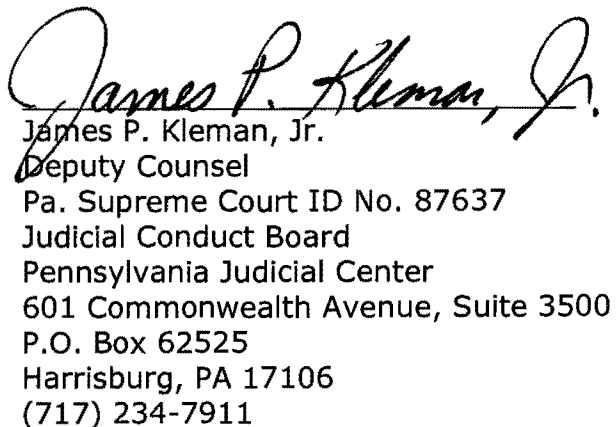 James P. Kleman, Jr.
James P. Kleman, Jr.
Deputy Counsel
Pa. Supreme Court ID No. 87637
Judicial Conduct Board
Pennsylvania Judicial Center
601 Commonwealth Avenue, Suite 3500
P.O. Box 62525
Harrisburg, PA 17106
(717) 234-7911